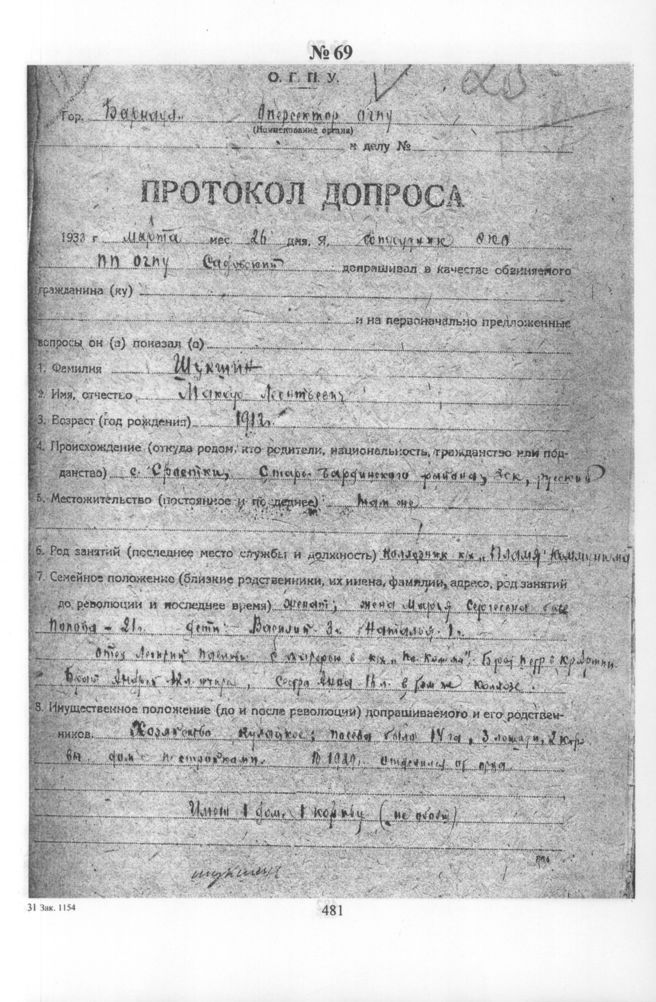 № 69
О. Г. П. У.
Гор. Барнаул. Оперсектор ОГПУ
(Наименование органа)
к делу №
ПРОТОКОЛ ДОПРОСА
1933 г марта мес. 26 дня. Я, сотрудник ЭКО
ПП ОГПУ допрашивал в качестве обвиняемого
гражданина (ку)
и на первоначально предложенные
вопросы он (а) показал (а)
1. Фамилия Шукшин
2. Имя, отчество Макар Леонтьевич
3. Возраст (год рождения) 1912
4. Происхождение (откуда родом, кто родители, национальность, гражданство или под-
данство) с. Сростки, Старо-Бардинского района, Зск, русский
5. Местожительство (постоянное и последнее) там же
6. Род занятий (последнее место службы и должность) колхозник к/х „Пламя Коммунизма
7. Семейное положение (близкие родственники, их имена, фамилии, адреса, род занятий
до революции и последнее время) женат; жена Мария Сергеевна
Попова – 21г. дети: Василий 3г. Наталья 1г.
отец Леонтий с матерью в к/х Брат Петр в Кр. Армии
Брат Андрей 12л. сестра Анна 16л. в том же колхозе.
8. Имущественное положение (до и после революции) допрашиваемого и его родствен-
ников. Хозяйство кулацкое; посева было 14 га, 3 лошади, 2 коро
вы дом с постройками. В 1929 отделился от отца
Имею 1 дом, 1 корову
шукшин
31 Зак. 1154
481